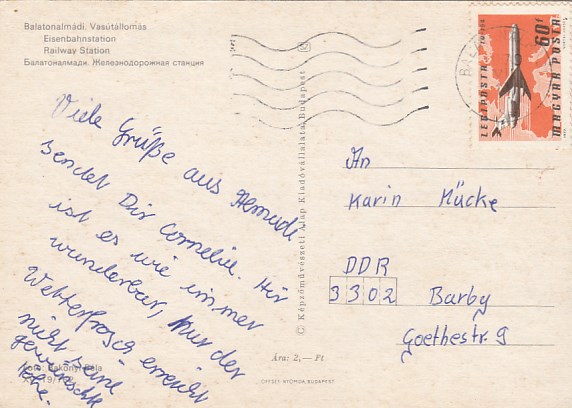 Balatonalmádi, Vasútállomás
Eisenbahnstation
Railway Station
Балатоналмади. Железнодорожная станция
Viele Grüße aus Almadi
sendet Dir Cornelia. Hir
ist es wie immer
wunderbar, nur der
Wetterfrosch erreicht
nicht seine
gewünschte
Höhe.
Bakonyi Béla
© Képzőművészeti Alap Kiadóvállalata, Budapest
Ára: 2,— Ft
OFFSET NYOMDA, BUDAPEST
LÉGIPOSTA
60f
MAGYAR POSTA
An
Karin Mücke
DDR
3302 Barby
Goethestr. 9